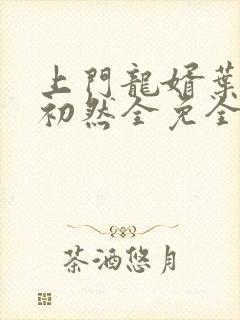 上門龍婿葉
初然全免全
茶酒悠月